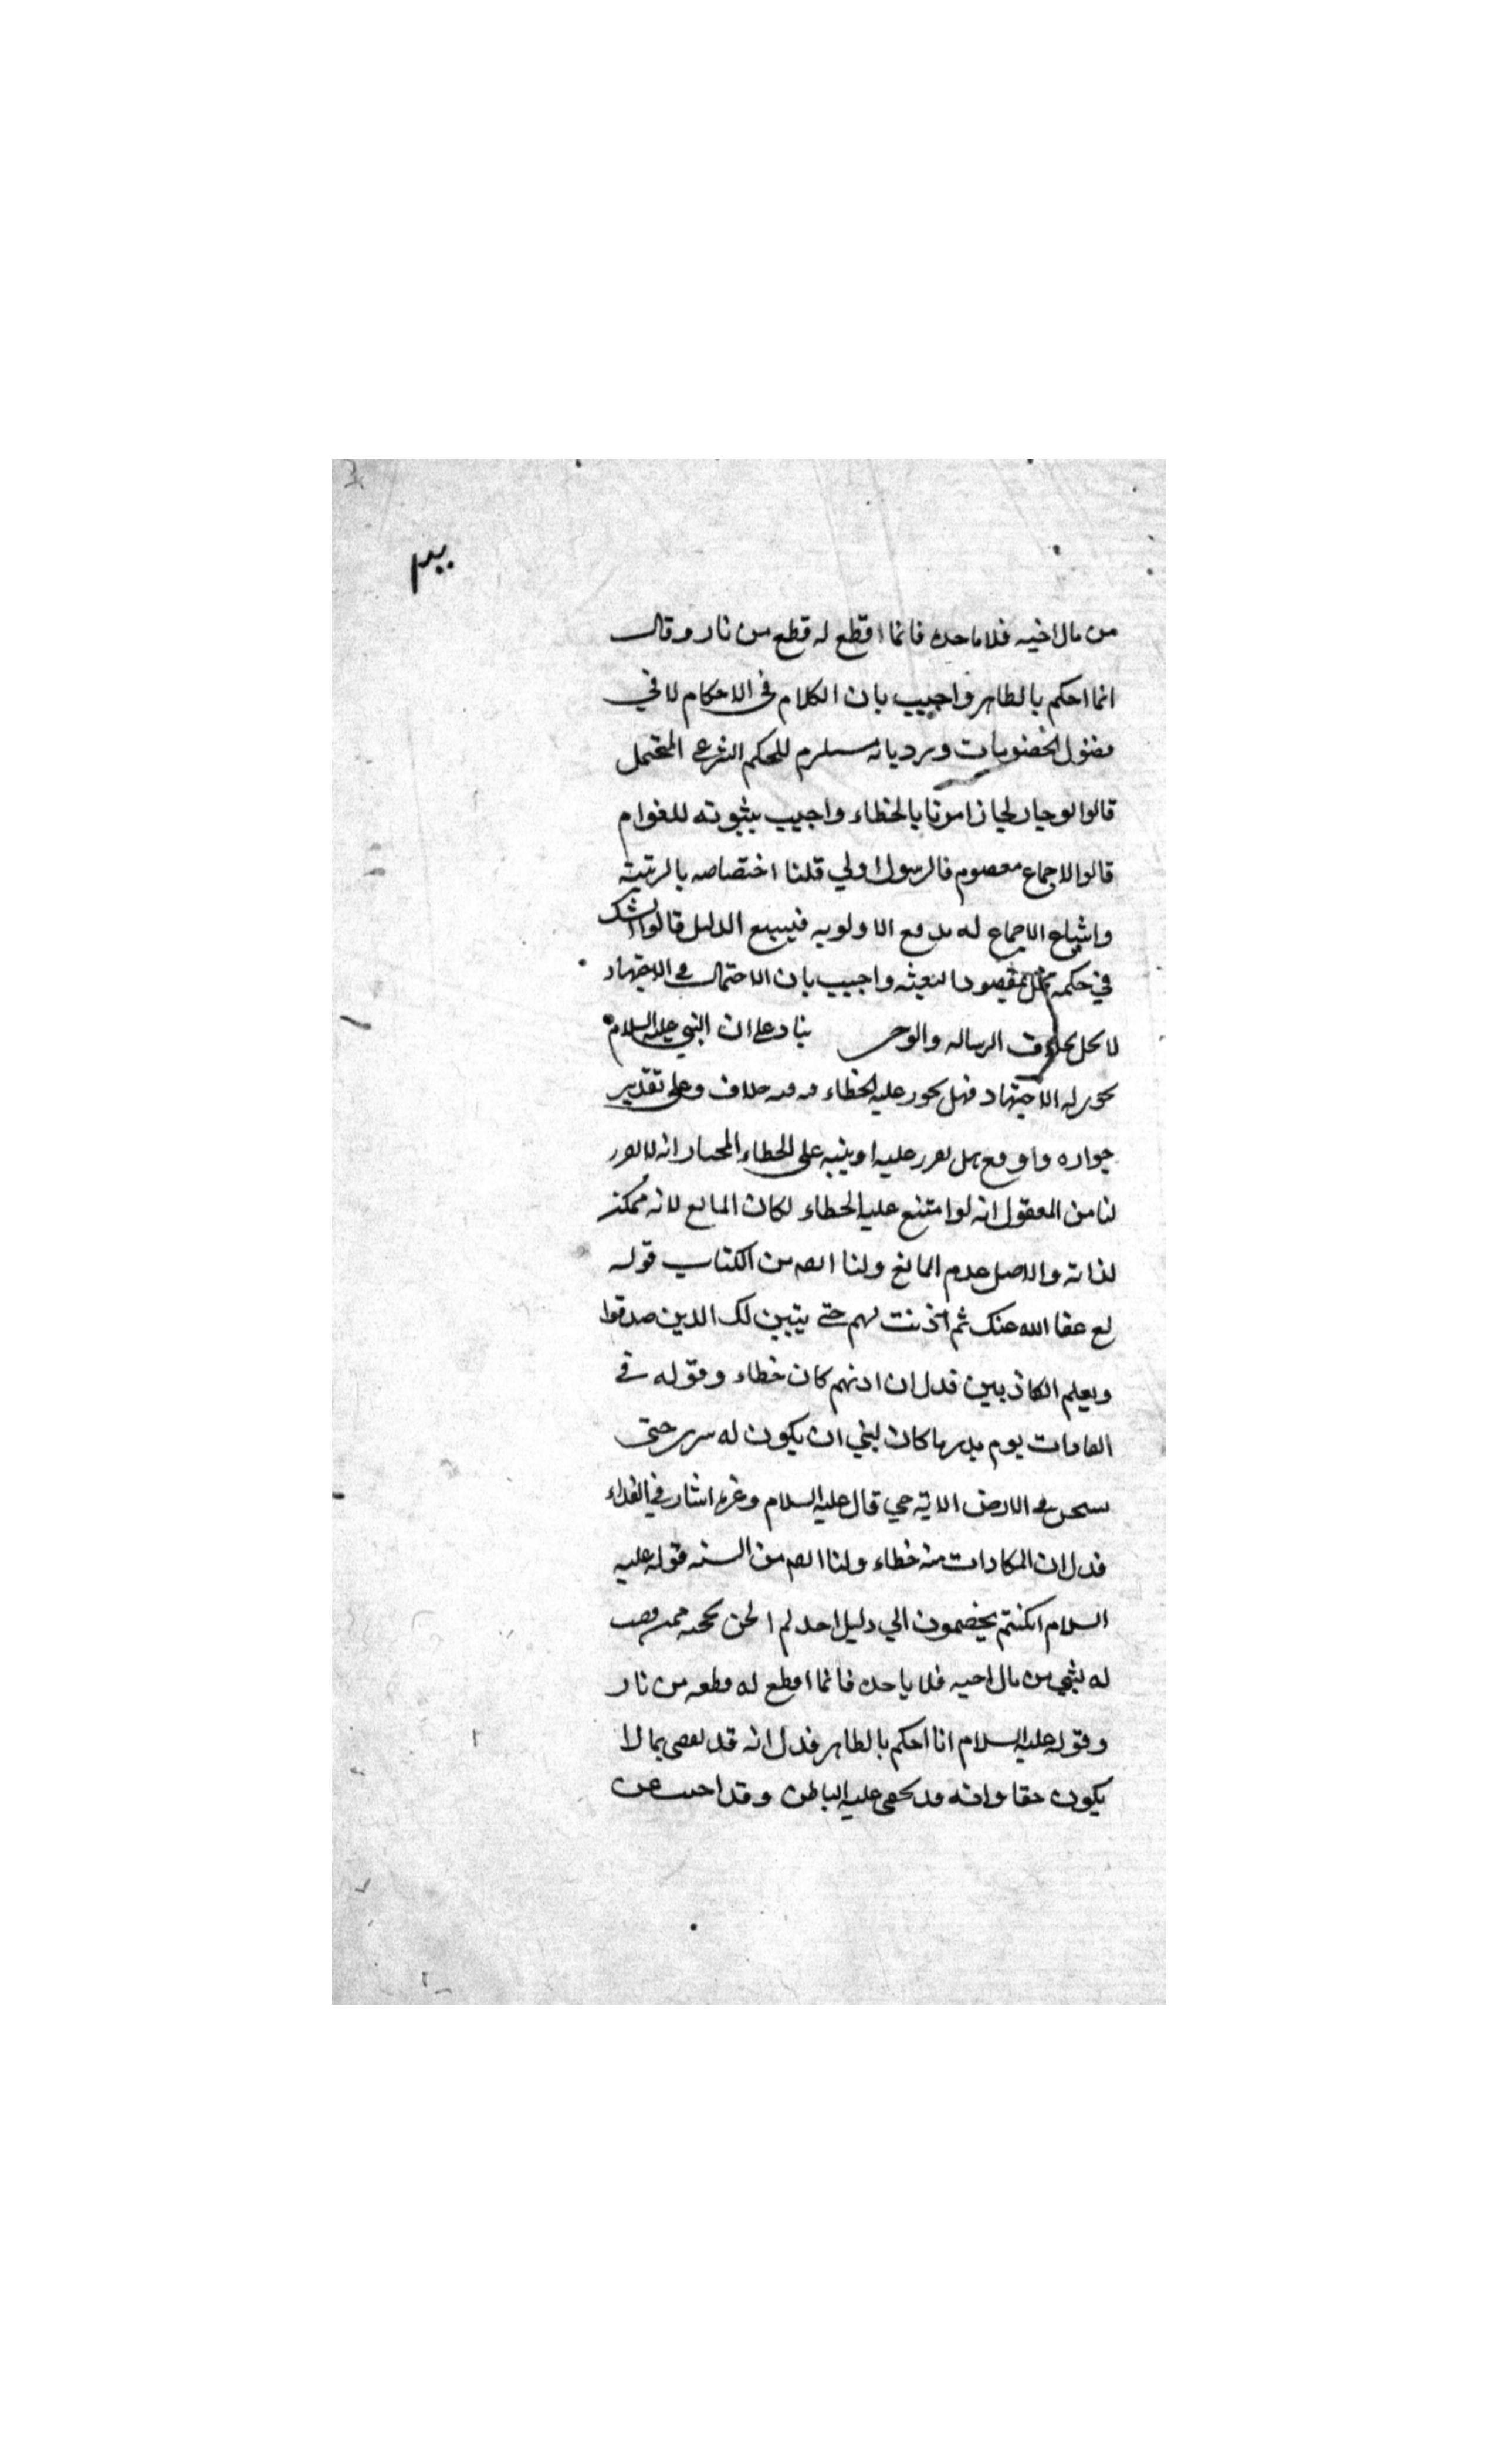 من مال اخيه فلا ياخذه فانما اقطع له قطع من نار وقال
انما احكم بالظاهر واجيب بان الكلام في الاحكام لا في
الخصومات ويرد بانه مستلزم للحكم الشرعي المحتمل
قالوا لو جاز لجاز امرنا بالخطاء واجيب بثبوته للعوام
قالوا الاجماع معصوم فالرسول اولي قلنا اختصاصه بالرتبة
واتباع الاجماع له يدفع الاولويه فيتبع الدليل قالوا الشك
في حكمه مخل بمقصود البعثه واجيب بان الاحتمال في الاجتهاد
لا يخل بخلاف الرساله والوحي بناء على ان النبي عليه السلام
يجوز له الاجتهاد فهل يجوز عليه الخطاء فيه خلاف وعلى تقدير
جوازه واوقع هل يقرر عليه او ينبه على الخطاء المختار انه لا يقرر
لنا من المعقول انه لوامتنع عليه الخطاء لكان المانع لانه ممكن
لذاته والاصل عدم المانع ولنا ايضا من الكتاب قوله
تع عفا الله عنك ثم أذنت لهم حتى يتبين لك الذين صدقوا
ويعلم الكاذبين فدل ان اذنهم كان خطاء وقوله في
المفادات يوم بدر ما كان لنبي ان يكون له اسرى حتى
يثخن في الارض الاية حتي قال عليه السلام وغيره اشار في الفداء
فدل ان المفادات منه خطاء ولنا ايضا من السنه قوله عليه
السلام انكم تختصمون الي احدكم الحن بحجته فمن قضيت
له بشي من مال اخيه فلا ياخذه فانما اقطع له قطعه من نار
وقوله عليه السلام انا احكم بالظاهر فدل انه قد يقضى بما لا
يكون حقا وانه قد يخفى عليه الباطن وقد اجيب عن